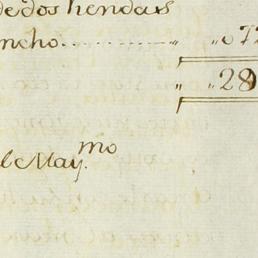 dedos hendas
ncho............ „ „072
„ „28
l May.mo